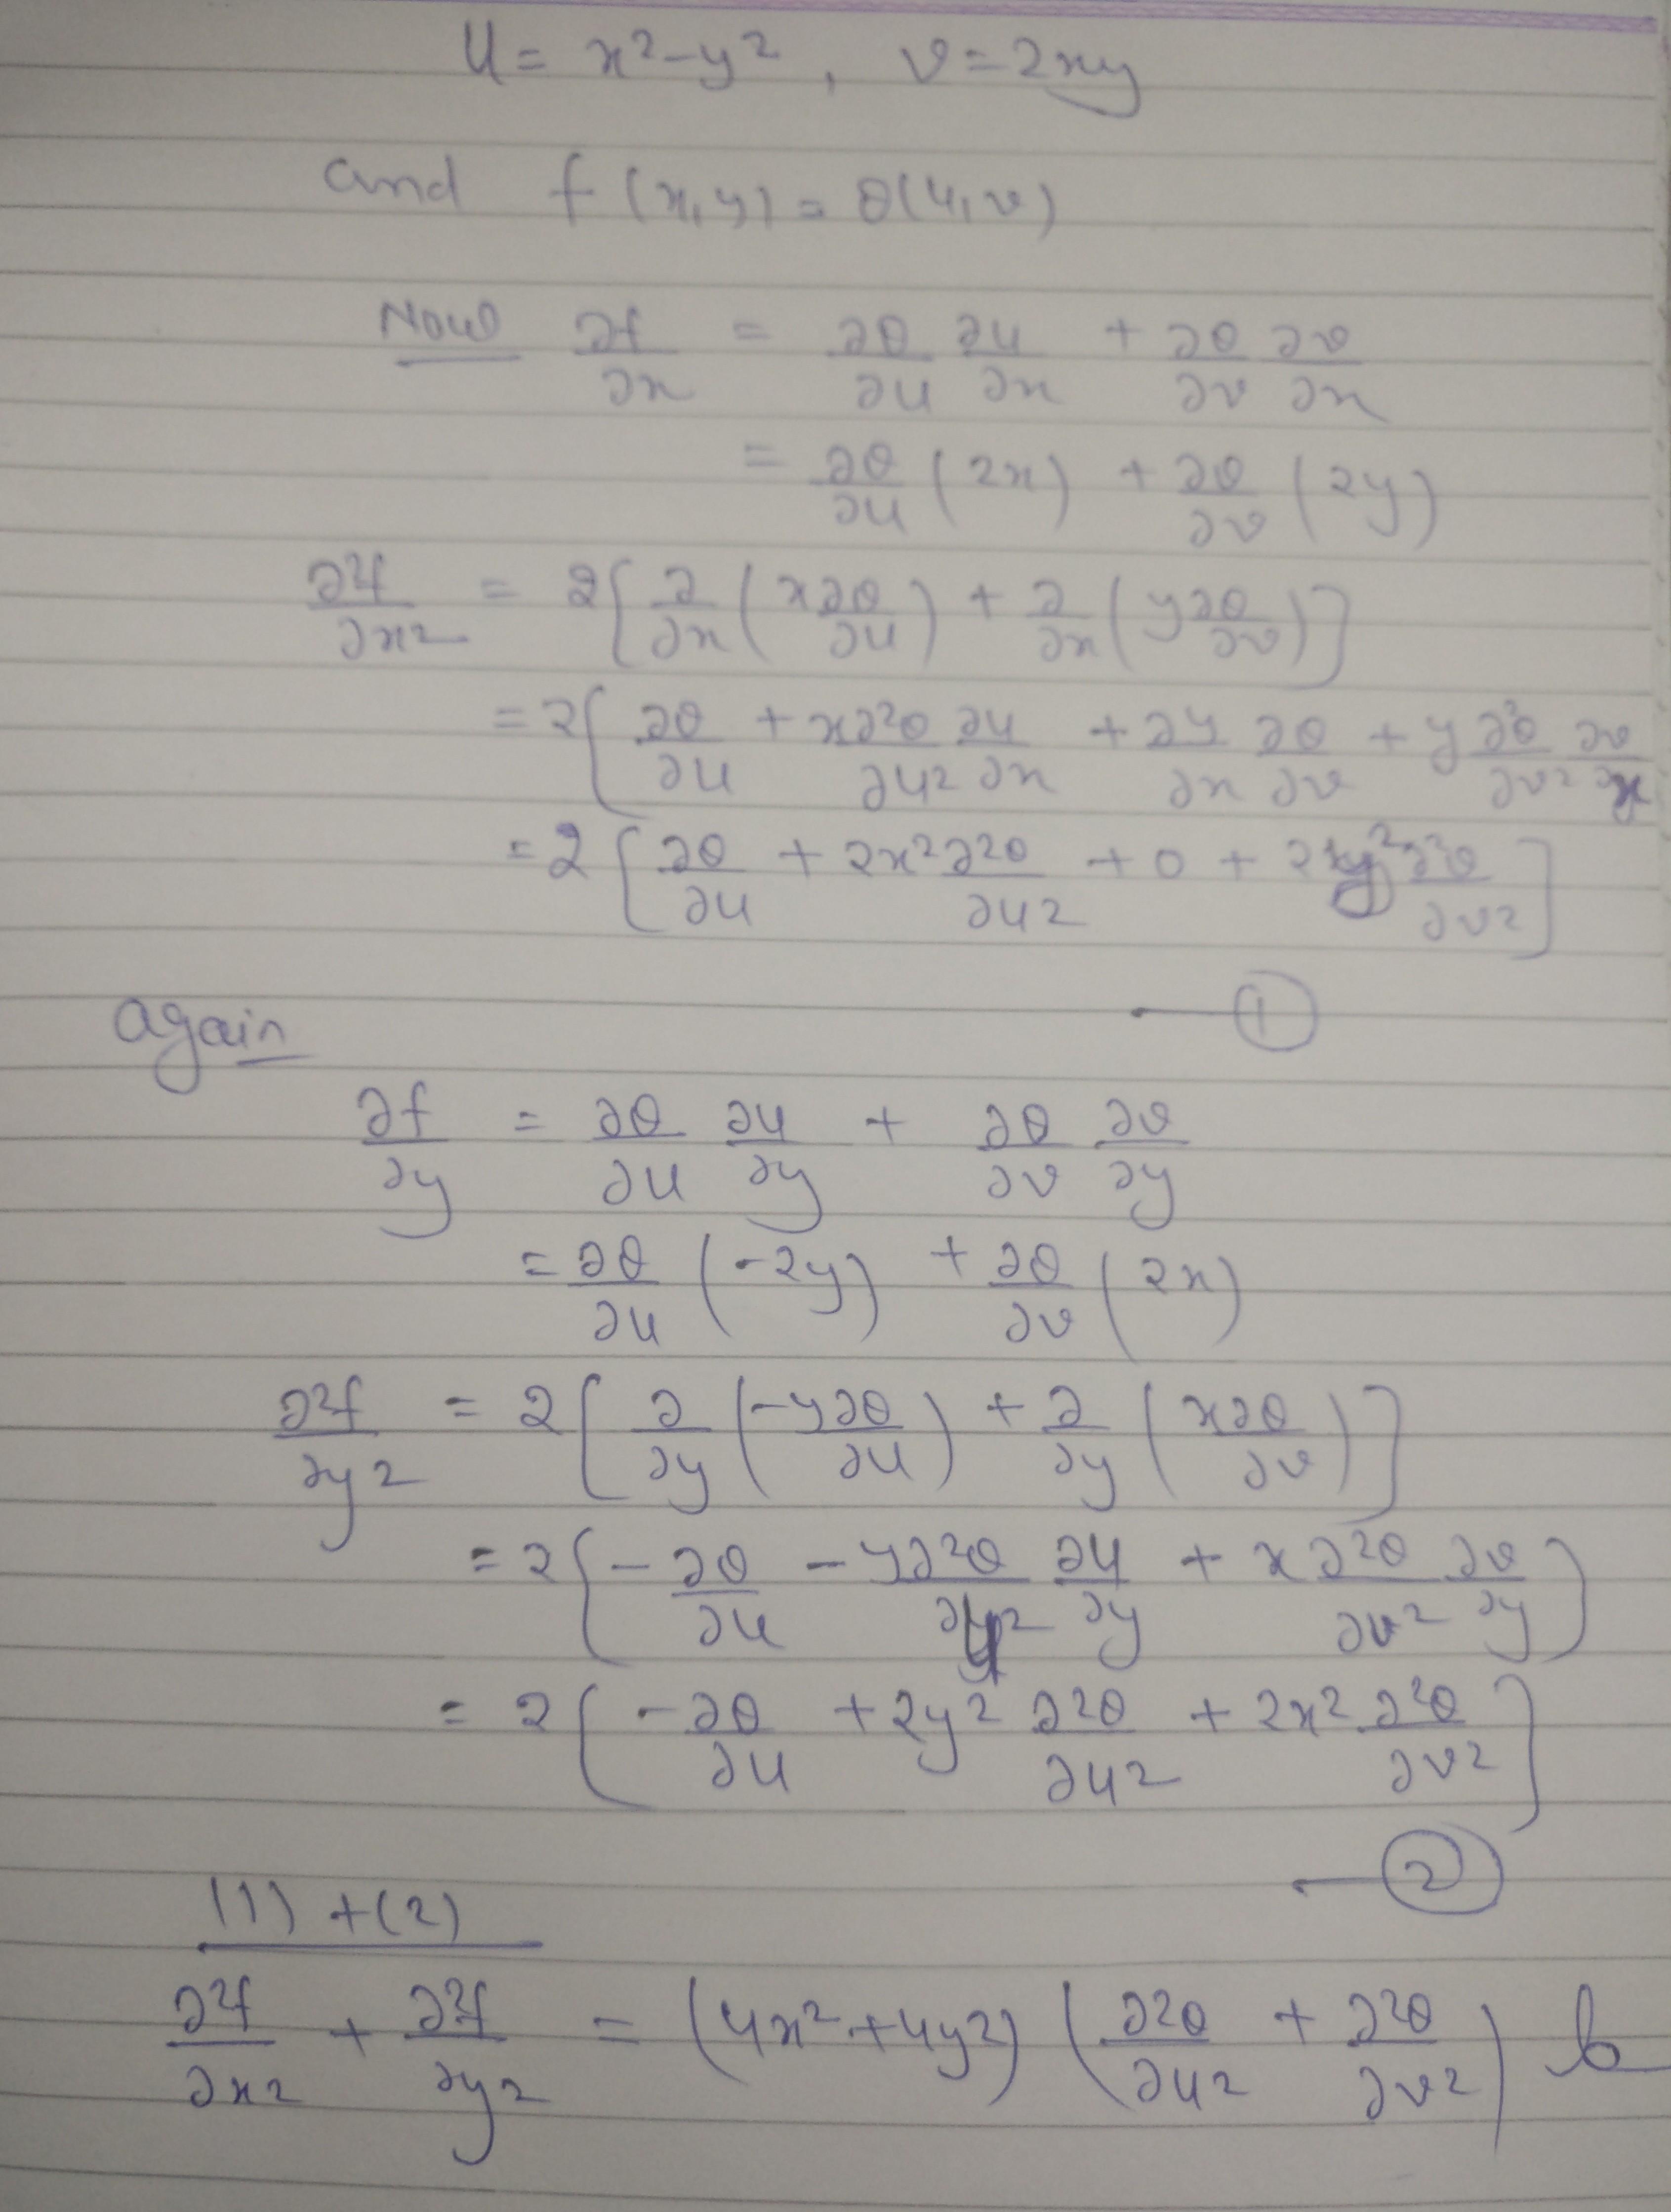 u = x² - y² , v = 2xy
and f(x,y) = θ(u,v)
Now ∂f/∂x = ∂θ/∂u ∂u/∂x + ∂θ/∂v ∂v/∂x
= ∂θ/∂u (2x) + ∂θ/∂v (2y)
∂²f/∂x² = 2[∂/∂x (x∂θ/∂u) + ∂/∂x (y∂θ/∂v)]
= 2[∂θ/∂u + x∂²θ/∂u² ∂u/∂x + ∂y/∂x ∂θ/∂v + y ∂²θ/∂v² ∂v/∂x
= 2[∂θ/∂u + 2x²∂²θ/∂u² + 0 + 2y² ∂²θ/∂v²]
— ①
again
∂f/∂y = ∂θ/∂u ∂u/∂y + ∂θ/∂v ∂v/∂y
= ∂θ/∂u (-2y) + ∂θ/∂v (2x)
∂²f/∂y² = 2[∂/∂y (-y∂θ/∂u) + ∂/∂y (x∂θ/∂v)]
= 2[-∂θ/∂u - y∂²θ/∂u² ∂u/∂y + x ∂²θ/∂v² ∂v/∂y]
= 2[-∂θ/∂u + 2y² ∂²θ/∂u² + 2x² ∂²θ/∂v²]
— ②
(1) + (2)
∂²f/∂x² + ∂²f/∂y² = (4x² + 4y²) (∂²θ/∂u² + ∂²θ/∂v²)